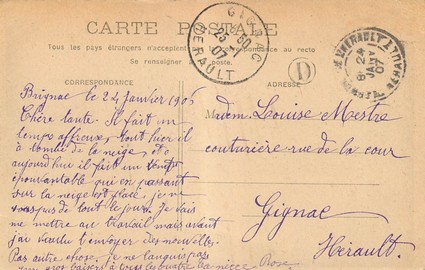 CARTE POSTALE
Tous les pays étrangers n'acceptent pas la correspondance au recto
Se renseigner à la poste.
GIGNAC
HERAULT
07
D
8 24
JANV
07
CORRESPONDANCE
ADRESSE
Brignac le 24 Janvier 1906
Chère tante. Il fait un
temps affreux. tout hier il
a tombé de la neige. Et
aujourd'hui il fait un vent
épouvantable qui en passant
sur la neige est glacé, je ne
pas de tout le jour. Je vais
me mettre au travail mais avant
j'ai voulu t'envoyer des nouvelles.
Pas autre chose, je ne languis pas
gros baiser à tous la nièce Rose
Madame Louise Mestre
couturière rue de la cour
Gignac
Hérault.